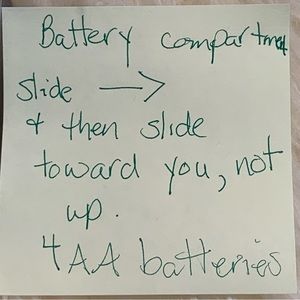 Battery compartment
slide →
& then slide
toward you, not
up.
4 AA batteries